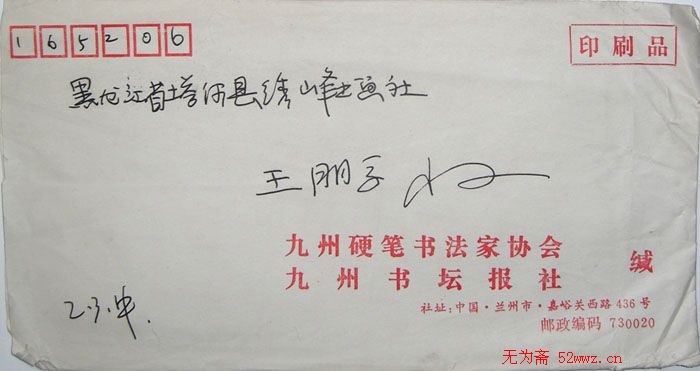 165200
印刷品
黑龙江省塔河县绣峰书画社
王朋
九州硬笔书法家协会
九州书坛报社
缄
社址:中国·兰州市·嘉峪关西路436号
邮政编码 730020
无为斋 52wwz.cn